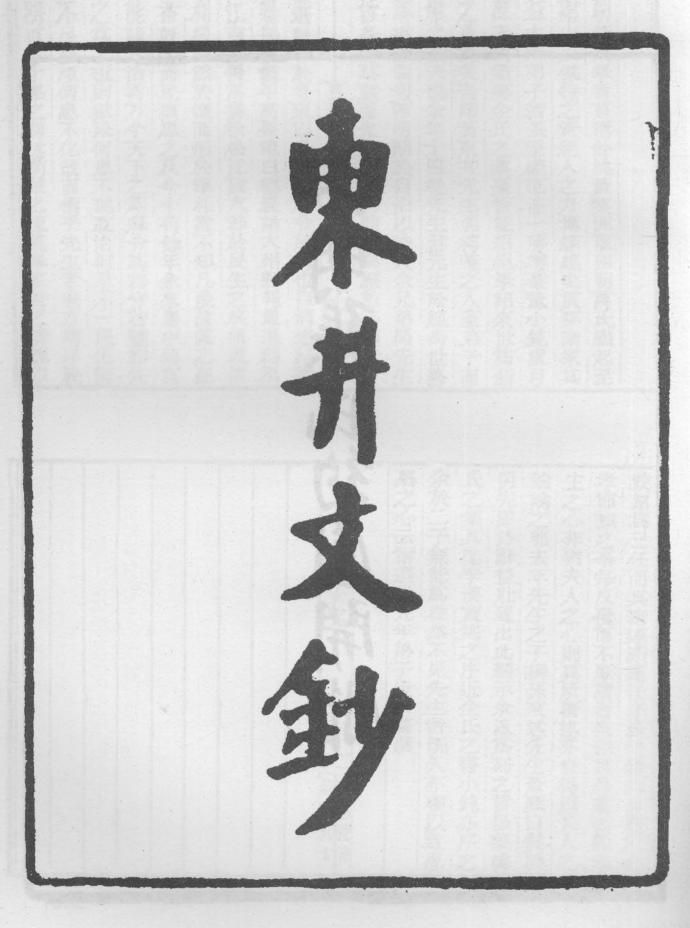 東井文鈔